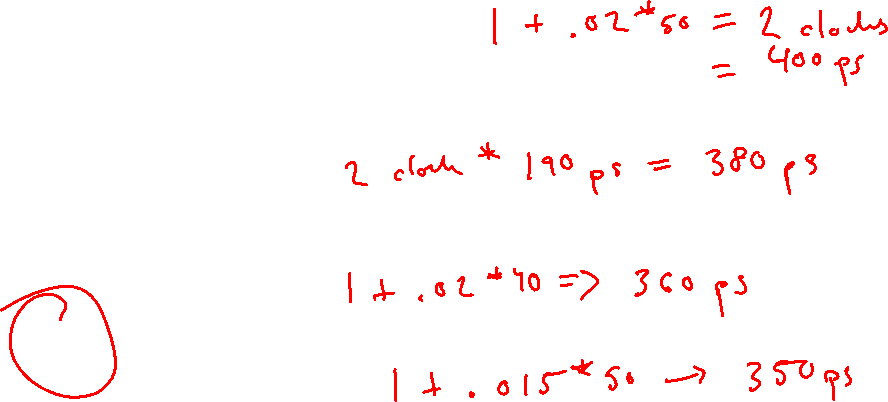 1 + .02*50 = 2 clocks
= 400 ps
2 clock * 190 ps = 380 ps
1 + .02*40 => 360 ps
1 + .015*50 → 350 ps